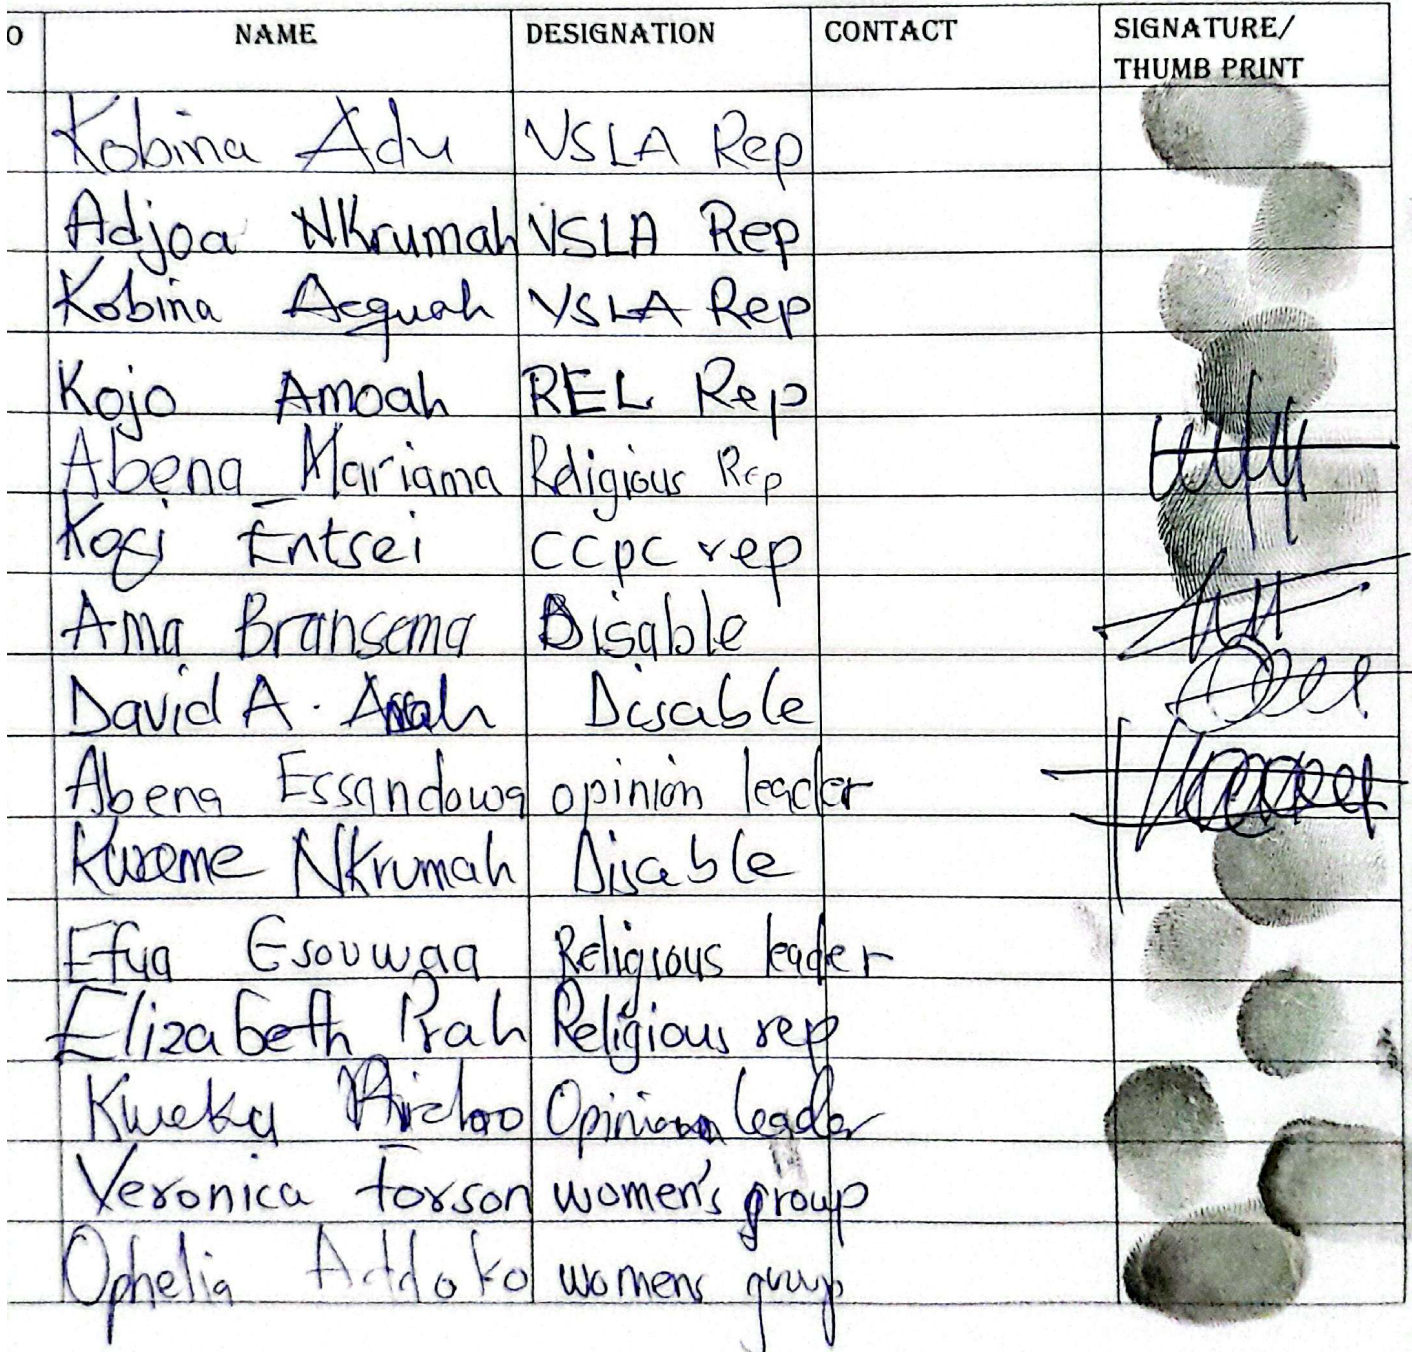 O NAME DESIGNATION CONTACT SIGNATURE/
THUMB PRINT
Kobina Adu VSLA Rep
Adjoa NKrumah VSLA Rep
Kobina Acquah VSLA Rep
Kojo Amoah REL Rep
Abena Mariama Religious Rep
Kofi Entsei CCPC rep
Ama Bransema Disable
David A. Disable
Abena Essandowa opinion leader
Kwame Nkrumah Disable
Efua Esouwaa Religious leader
Elizabeth Prah Religious rep
Kweku Opinion leader
Veronica forson women's group
Ophelia Addoko womens group